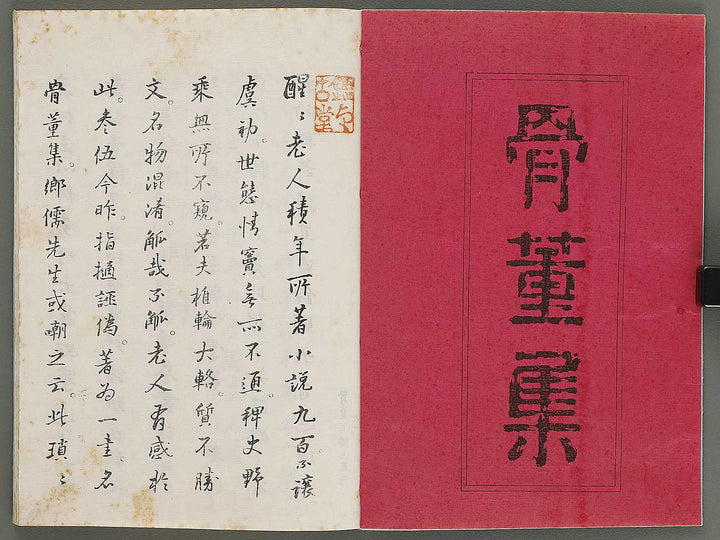 骨董集
醒〻老人積年所著小説九百不讓
虞初。世態情竇無所不通。稗史野
乘無所不窺。若夫椎輪大輅。質不勝
文。名物混淆。觚哉不觚。老人有感於
此。叅伍今昨。指擿誣偽。著為一書。名
骨董集。鄉儒先生或嘲之云。此瑣〻